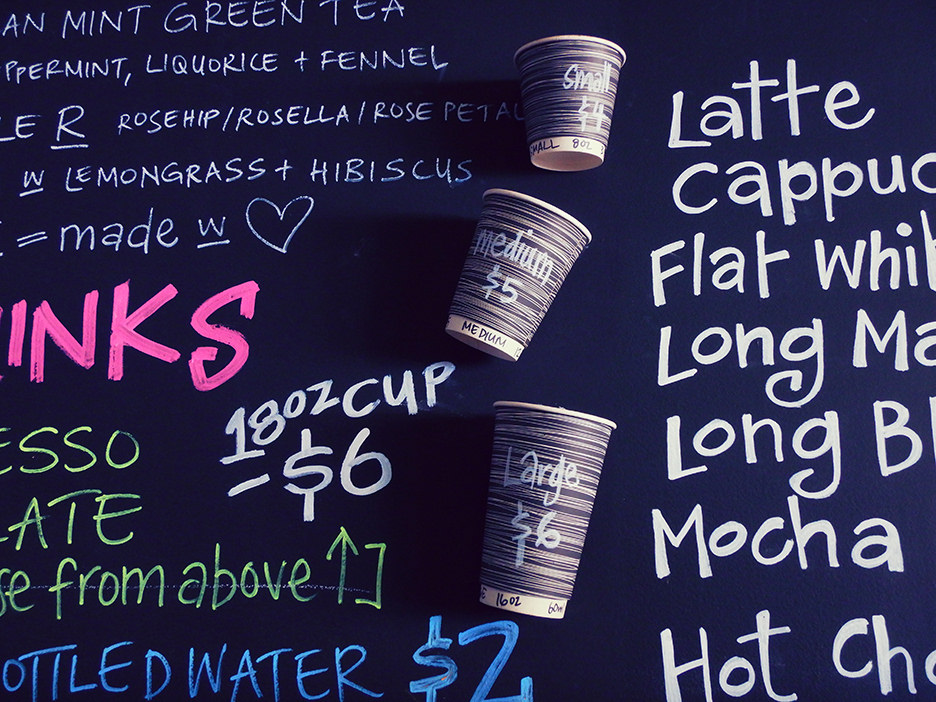 AN MINT GREEN TEA
PPERMINT, LIQUORICE + FENNEL
LE R ROSEHIP/ROSELLA/ROSE PETAL
w LEMONGRASS + HIBISCUS
= made w ♡
INKS
18oz CUP
- $6
ESSO
LATE
se from above ↑]
OTTLED WATER $2
small
$4
SMALL 8oz
medium
$5
MEDIUM
Large
$6
16oz
Latte
Cappuc
Flat Whit
Long Ma
Long Bl
Mocha
Hot Cho